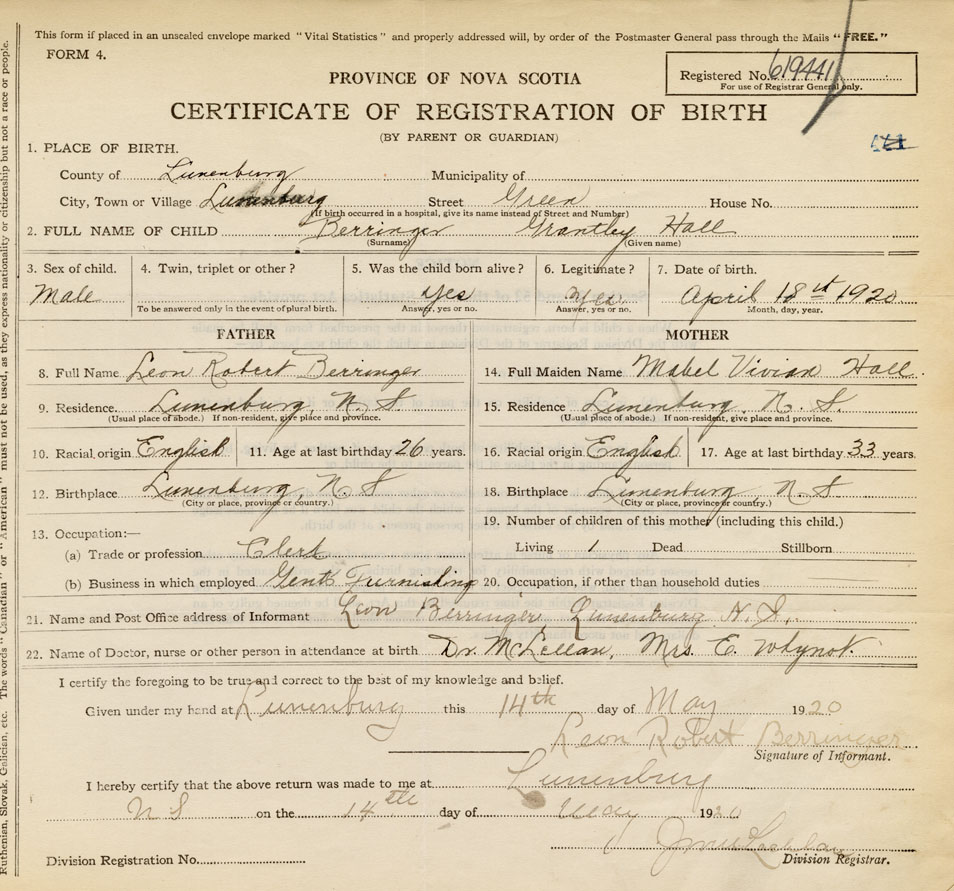 This form if placed in an unsealed envelope marked "Vital Statistics" and properly addressed will, by order of the Postmaster General pass through the Mails "FREE."
FORM 4.
Registered No. 619441
For use of Registrar General only.
PROVINCE OF NOVA SCOTIA
CERTIFICATE OF REGISTRATION OF BIRTH
(BY PARENT OR GUARDIAN)
1. PLACE OF BIRTH.
County of Lunenburg Municipality of
City, Town or Village Lunenburg Street Green House No.
(If birth occurred in a hospital, give its name instead of Street and Number)
2. FULL NAME OF CHILD Berringer Grantley Hall
(Surname) (Given name)
3. Sex of child. 4. Twin, triplet or other? 5. Was the child born alive? 6. Legitimate? 7. Date of birth.
Male Yes Yes. April 18th 1920
To be answered only in the event of plural birth. Answer, yes or no. Answer, yes or no. Month, day, year.
FATHER MOTHER
8. Full Name Leon Robert Berringer 14. Full Maiden Name Mabel Vivian Hall
9. Residence. Lunenburg, N. S. 15. Residence Lunenburg, N. S.
(Usual place of abode.) If non-resident, give place and province. (Usual place of abode.) If non-resident, give place and province.
10. Racial origin English 11. Age at last birthday 26 years. 16. Racial origin English 17. Age at last birthday 33 years.
12. Birthplace Lunenburg, N. S 18. Birthplace Lunenburg N. S
(City or place, province or country.) (City or place, province or country.)
13. Occupation:— 19. Number of children of this mother (including this child.)
(a) Trade or profession Clerk Living 1 Dead Stillborn
(b) Business in which employed Gents Furnishing 20. Occupation, if other than household duties
21. Name and Post Office address of Informant Leon Berringer Lunenburg N. S.
22. Name of Doctor, nurse or other person in attendance at birth Dr. McLellan, Mrs. E. Whynot.
I certify the foregoing to be true and correct to the best of my knowledge and belief.
Given under my hand at Lunenburg this 14th day of May 1920
Leon Robert Berringer
Signature of Informant.
I hereby certify that the above return was made to me at Lunenburg
N S on the 14th day of May 1920
Division Registration No. Division Registrar.
Ruthenian, Slovak, Galician, etc. The words "Canadian" or "American" must not be used, as they express nationality or citizenship but not a race or people.